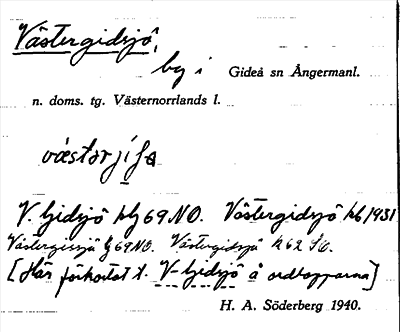 Västergidsjö,
by i Gideå sn Ångermanl.
n. doms. tg. Västernorrlands l.
V. Gidsjö hfj 69 NO. Västergidsjö hb 1931
Västergissjä fj 69 NO. Västergidsjö h 62 SO.
[Här förkortat t. V-Gidsjö å ordtopparna]
H. A. Söderberg 1940.